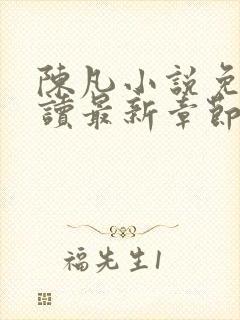 陳凡小説免
讀最新章節
福先生1